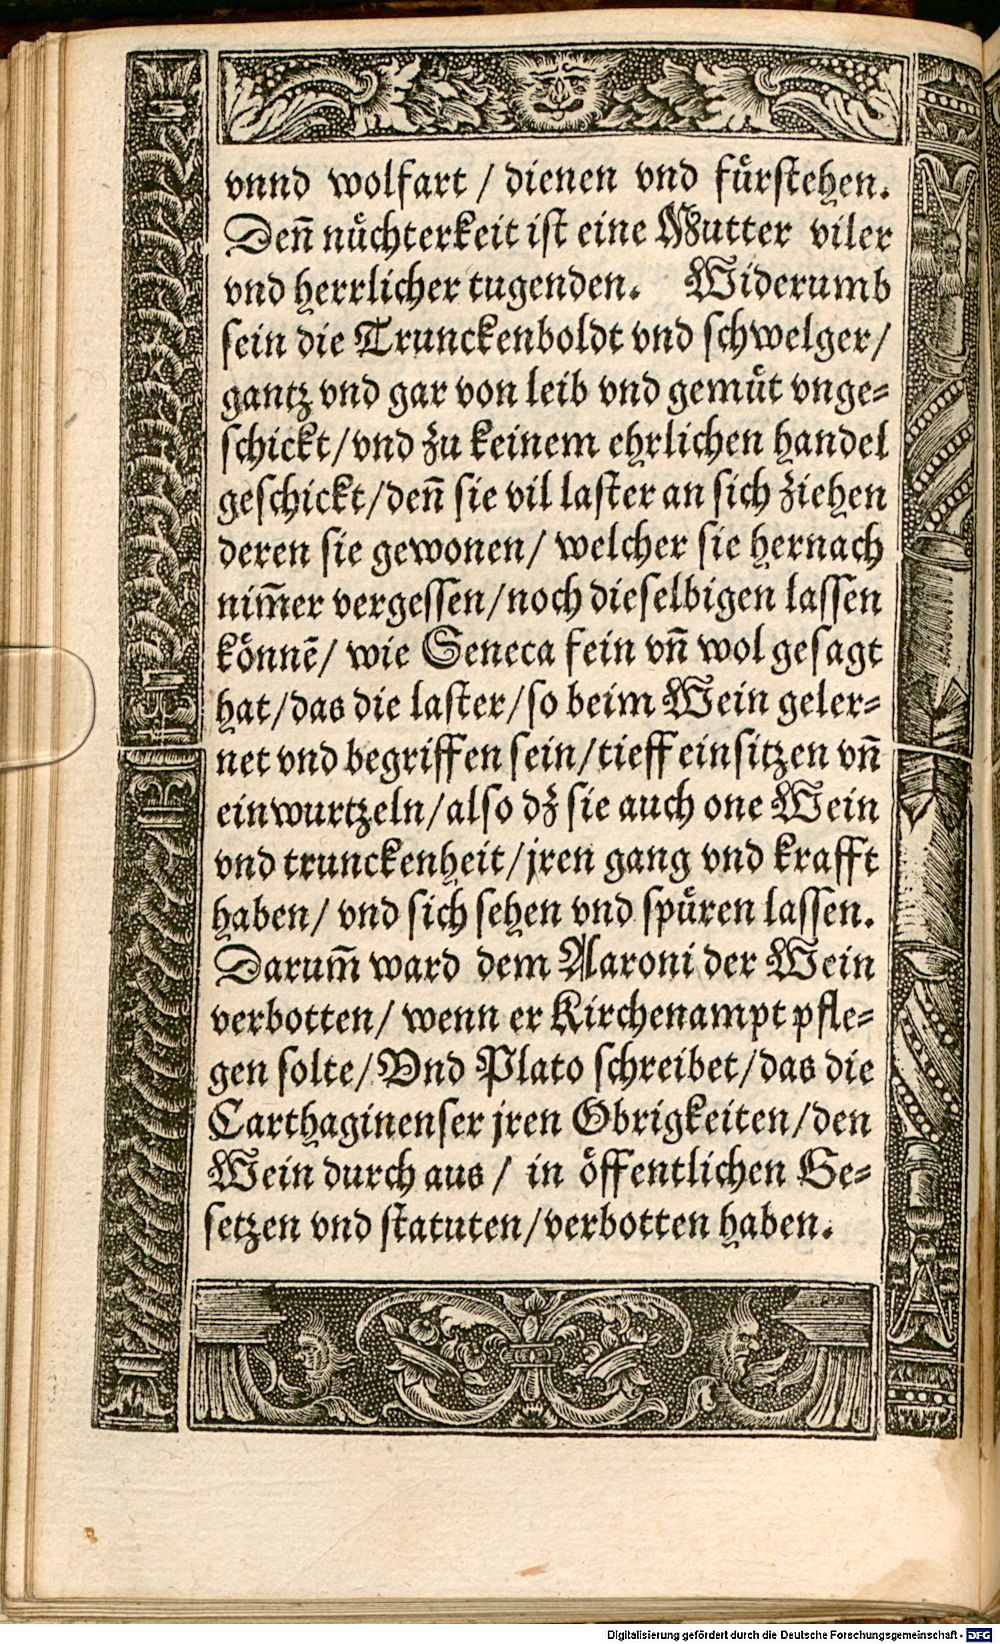 vnnd wolfart / dienen vnd fuͤrstehen.
Deñ nuͤchterkeit ist eine Mutter viler
vnd herrlicher tugenden. Widerumb
sein die Trunckenboldt vnd schwelger/
gantz vnd gar von leib vnd gemuͤt vnge-
schickt/vnd zu keinem ehrlichen handel
geschickt/deñ sie vil laster an sich ziehen
deren sie gewonen/ welcher sie hernach
nim̃er vergessen/noch dieselbigen lassen
koͤnnẽ/ wie Seneca fein vñ wol gesagt
hat/das die laster/so beim Wein geler-
net vnd begriffen sein/tieff einsitzen vñ
einwurtzeln/also dz̃ sie auch one Wein
vnd trunckenheit/jren gang vnd krafft
haben/ vnd sich sehen vnd spuͤren lassen.
Darum̃ ward dem Aaroni der Wein
verbotten/ wenn er Kirchenampt pfle-
gen solte/Vnd Plato schreibet/das die
Carthaginenser jren Obrigkeiten/den
Wein durch aus / in oͤffentlichen Ge-
setzen vnd statuten/verbotten haben.
Digitalisierung gefördert durch die Deutsche Forschungsgemeinschaft - DFG